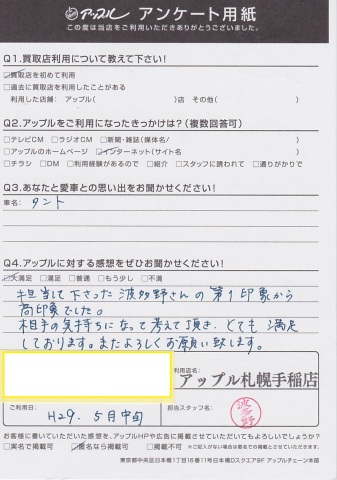 アップル アンケート用紙
この度は当店をご利用いただきありがとうございました。
Q1.買取店利用について教えて下さい!
☑買取店を初めて利用
□過去に買取店を利用したことがある
利用した店舗: アップル( )店 その他( )
Q2.アップルをご利用になったきっかけは?(複数回答可)
□テレビCM □ラジオCM □新聞・雑誌(媒体名/ )
□アップルのホームページ ☑インターネット(サイト名 )
□チラシ □DM □利用経験があるので □紹介 □スタッフに誘われて □通りがかりで
Q3.あなたと愛車との思い出をお聞かせください!
車名: タント
Q4.アップルに対する感想をぜひお聞かせください!
☑大満足 □満足 □普通 □もう少し □不満
担当して下さった波多野さんの第1印象から
高印象でした。
相手の気持ちになって考えて頂き、とても満足
しております。またよろしくお願い致します。
ご利用店名:
アップル札幌手稲店
ご利用日: H29. 5月中旬
担当スタッフ名: 波多野
お客様に書いていただいた感想を、アップルHPや広告に掲載させていただいてもよろしいでしょうか?
□実名で掲載可 ☑匿名なら掲載可 □掲載不可
※ご記入がない場合は匿名での掲載とさせていただきます。
東京都中央区日本橋1丁目16番11号日本橋Dスクエア9F アップルチェーン本部